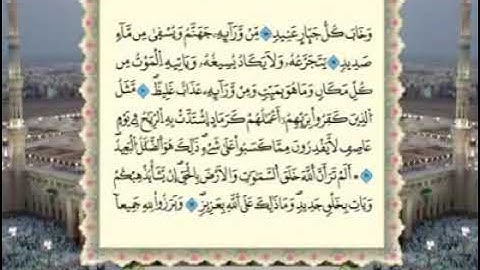 وَخَابَ كُلُّ جَبَّارٍ عَنِيدٍ ۝ مِّنْ وَّرَآئِهِۦ جَهَنَّمُ وَيُسْقَىٰ مِن مَّآءٍ
صَدِيدٍ ۝ يَتَجَرَّعُهُۥ وَلَا يَكَادُ يُسِيغُهُۥ وَيَأْتِيهِ اِلْمَوْتُ مِن
كُلِّ مَكَانٍ وَمَا هُوَ بِمَيِّتٍ وَمِنْ وَّرَآئِهِۦ عَذَابٌ غَلِيظٌ ۝ مَّثَلُ
اُلذِينَ كَفَرُواْ بِرَبِّهِمْ أَعْمَٰلُهُمْ كَرَمَادٍ اِشْتَدَّتْ بِهِ اِلرِّيَٰحُ فِے يَوْمٍ
عَاصِفٍ لَّا يَقْدِرُونَ مِمَّا كَسَبُواْ عَلَىٰ شَےْءٍ ذَٰلِكَ هُوَ اَلضَّلَٰلُ اُلْبَعِيدُ
۝ أَلَمْ تَرَ أَنَّ اَللَّهَ خَلَقَ اَلسَّمَٰوَٰتِ وَالْأَرْضَ بِالْحَقِّ إِنْ يَّشَأْ يُذْهِبْكُمْ
وَيَأْتِ بِخَلْقٍ جَدِيدٍ ۝ وَمَا ذَٰلِكَ عَلَى اَللَّهِ بِعَزِيزٍ ۝ وَبَرَزُواْ لِلهِ جَمِيعاً